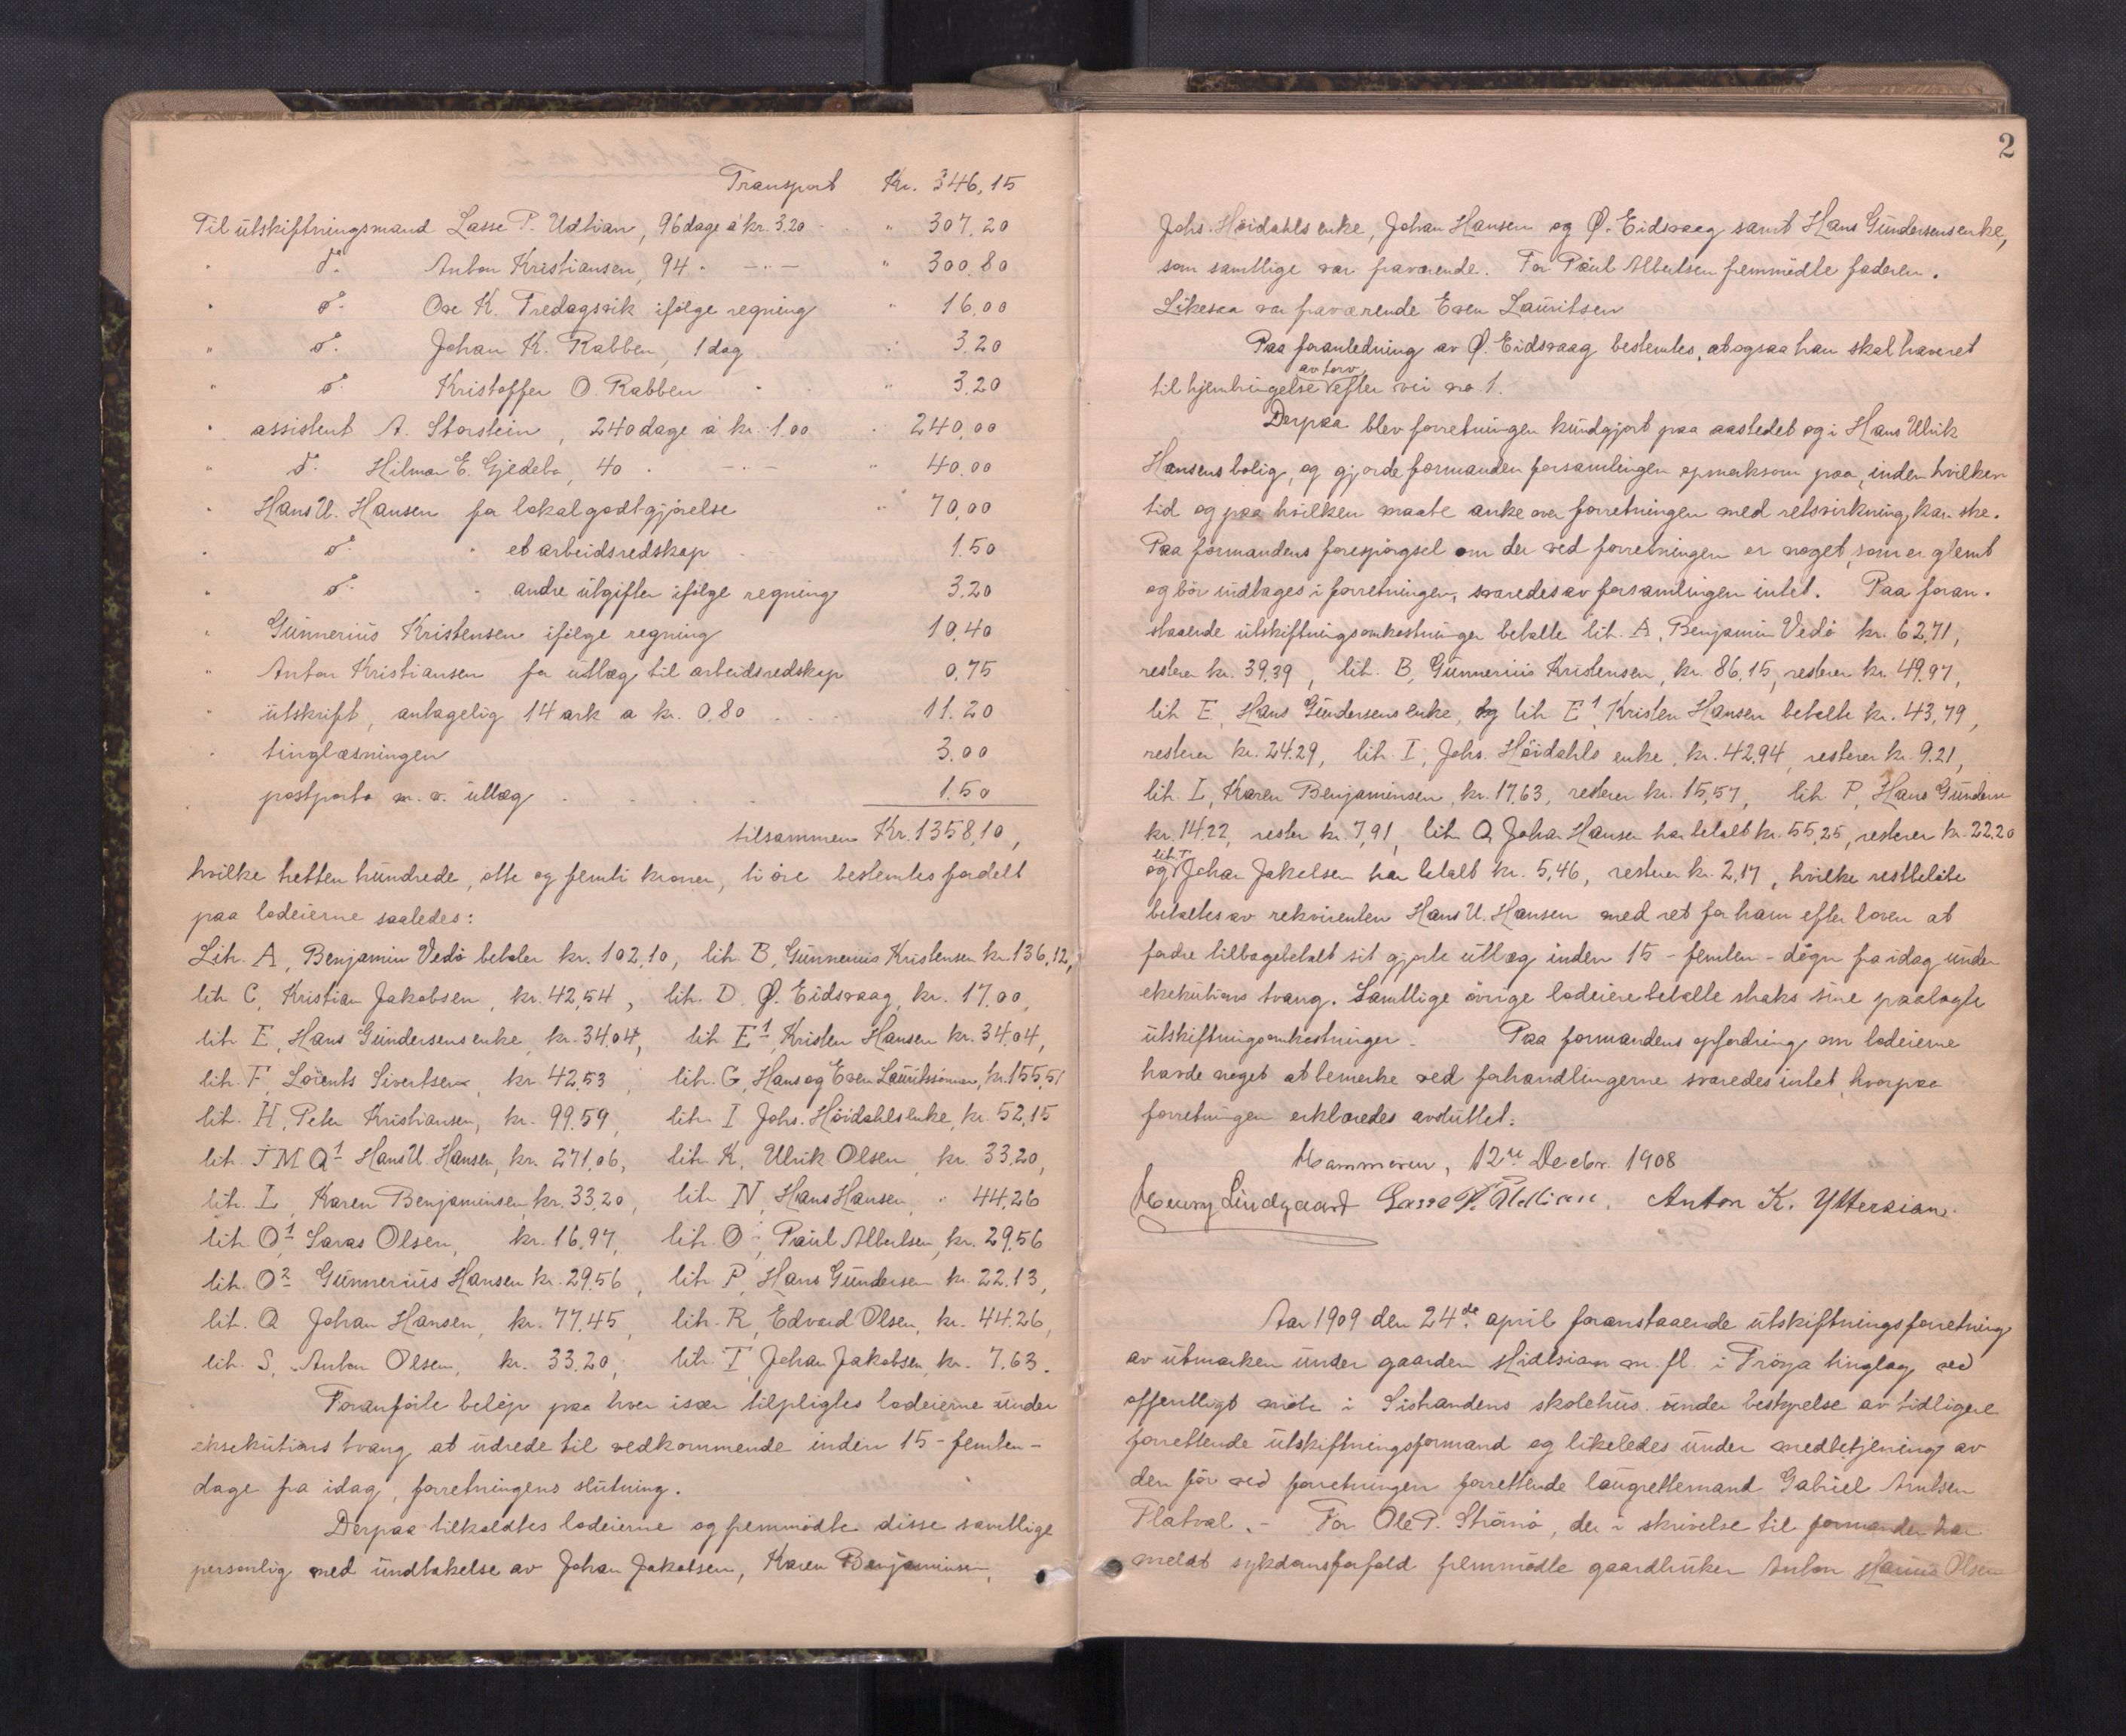 Transport Kr. 346,15
Til utskiftningsmand Lasse P. Udtian, 96 dage à kr. 3.20 " 307.20
" do. Anton Kristiansen, 94 " — " — " 300.80
" do. Ove K. Fredagsvik ifölge regning " 16,00
" do. Johan K. Rabben, 1 dag " 3.20
" do. Kristoffer O. Rabben " " 3.20
" assistent A. Storstein, 240 dage à kr. 1,00 " 240,00
" do. Hilmar E. Gjedebo, 40 " — " — " 40.00
" Hans U. Hansen for lokalgodtgjörelse " 70,00
" do. " et arbeidsredskap 1.50
" do. " andre utgifter ifölge regning 3.20
" Gunnerius Kristensen ifölge regning 10,40
" Anton Kristiansen for utlæg til arbeidsredskap 0,75
" utskrift, antagelig 14 ark a kr. 0,80 11.20
" tinglæsningen 3.00
postporto m. v. utlæg 1.50
tilsammen Kr. 1358,10,
hvilke tretten hundrede, otte og femti kroner, ti öre bestemtes fordelt
paa lodeierne saaledes:
Lit. A, Benjamin Vedö betaler kr. 102,10, lit. B, Gunnerius Kristensen kr. 136,12,
lit C, Kristian Jakobsen, kr. 42,54, lit. D. Ø. Eidsvaag, kr. 17,00,
lit E, Hans Gundersens enke kr. 34.04, lit E1, Kristen Hansen kr. 34,04,
lit. F, Lorents Sivertsen, kr. 42,53, lit. G, Hans og Even Lauritssönner, kr. 155,51
lit. H, Peter Kristiansen, kr. 99.59, lit I Johs. Höidahls enke, kr. 52,15
lit. J M Q1 Hans U. Hansen, kr. 271,06, lit K, Ulrik Olsen kr. 33.20,
lit. L, Karen Benjaminsen, kr. 33,20, lit N, Hans Hansen, " 44,26
lit O1 Saras Olsen, kr. 16,97, lit. O, Paul Albertsen, kr. 29,56
lit. O2 Gunnerius Hansen kr. 29.56, lit P, Hans Gundersen kr. 22.13,
lit. Q Johan Hansen, kr. 77.45, lit. R, Edvard Olsen, kr. 44.26,
lit. S, Anton Olsen, kr. 33.20, lit. T, Johan Jakobsen, kr. 7.63.
Foranförte belöp paa hver især tilpligtes lodeierne under
eksekutions tvang at udrede til vedkommende inden 15 - femten -
dage fra idag, forretningens slutning.
Derpaa tilkaldtes lodeierne og fremmödte disse samtlige
personlig med undtakelse av Johan Jakobsen, Karen Benjaminsen,
2
Johs. Höidahls enke, Johan Hansen og Ø. Eidsvaag samt Hans Gundersens enke,
som samtlige var fraværende. For Paul Albertsen fremmödte faderen.
Likesaa var fraværende Even Lauritsen
Paa foranledning av Ø. Eidsvaag bestemtes, at ogsaa han skal have ret
av torv
til hjembringelse efter vei no. 1.
Derpaa blev forretningen kundgjort paa aastedet og i Hans Ulrik
Hansens bolig, og gjorde formanden forsamlingen opmerksom paa, inden hvilken
tid og paa hvilken maate anke over forretningen med retsvirkning kan ske.
Paa formandens forespörgsel om der ved forretningen er noget, som er glemt
og bör indtages i forretningen, svaredes av forsamlingen intet. Paa foran-
staaende utskiftningsomkostninger betalte lit. A, Benjamin Vedö kr. 62,71,
resterer kr. 39,39, lit. B, Gunnerius Kristensen, kr. 86,15, resterer kr. 49.97,
lit E, Hans Gundersens enke, og lit E1, Kristen Hansen betalte kr. 43,79,
resterer kr. 24.29, lit. I, Johs. Höidahls enke, kr. 42.94, resterer kr. 9.21,
lit. L, Karen Benjaminsen, kr. 17,63, resterer kr. 15,57, lit P, Hans Gundersen
kr. 14.22, rester kr. 7,91, lit Q, Johan Hansen har betalt kr. 55,25, resterer kr. 22.20
lit. T
og Johan Jakobsen har betalt kr. 5,46, resterer kr. 2,17, hvilke restbelöb
betaltes av rekvirenten Hans U. Hansen med ret for ham efter loven at
fordre tilbagebetalt sit gjorte utlæg inden 15 - femten - dögn fra idag under
eksekutions tvang. Samtlige övrige lodeiere betalte straks sine paalagte
utskiftningsomkostninger. Paa formandens opfordring om lodeierne
havde noget at bemerke ved forhandlingerne svaredes intet, hvorpaa
forretningen erklæredes avsluttet.
Hammeren, 12te Decbr. 1908
Henry Lindgaard Lasse P. Udtian. Anton K. Yttersian.
Aar 1909 den 24de april foranstaaende utskiftningsforretning
av utmarken under gaarden Midtsian m. fl. i Fröya tinglag ved
offentligt möte i Sistrandens skolehus under bestyrelse av tidligere
forrettende utskiftningsformand og likeledes under medbetjening av
den för ved forretningen forrettende laugrettemand Gabriel Arntsen
Flatval. - For Ole P. Strömö, der i skrivelse til formanden har
meldt sykdomsforfald fremmödte gaardbruker Anton Marius Olsen